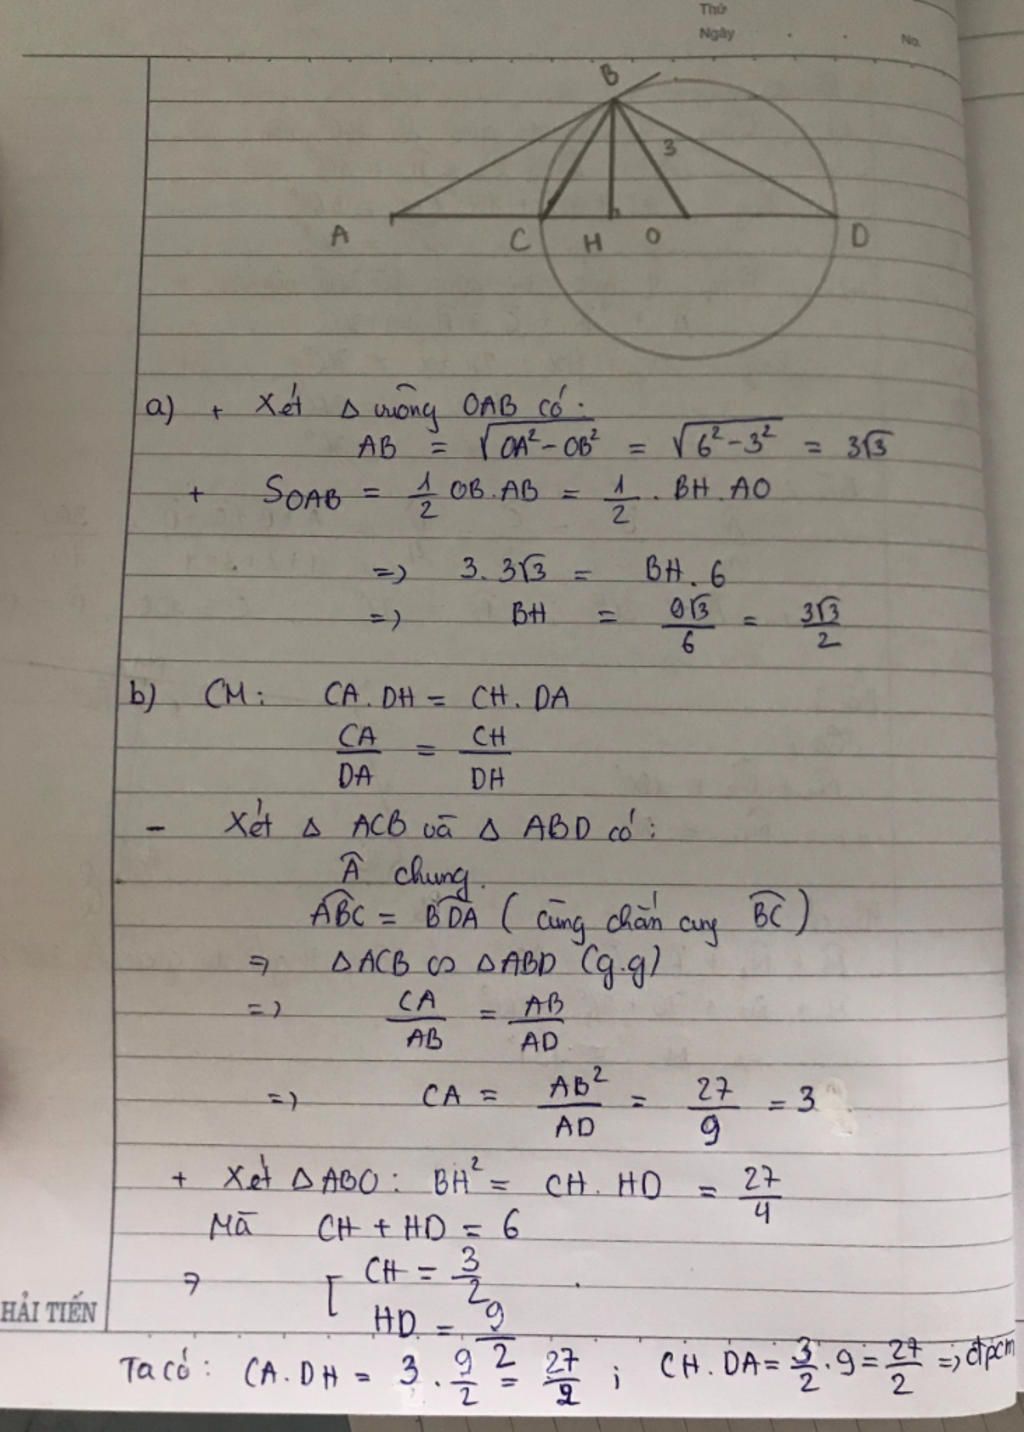 Thứ
Ngày
No.
B
3
A C H O D
a) + Xét Δ vuông OAB có:
AB = √(OA² - OB²) = √(6² - 3²) = 3√3
+ S_OAB = 1/2 OB.AB = 1/2 . BH.AO
=> 3.3√3 = BH.6
=> BH = 9√3/6 = 3√3/2
b) CM: CA.DH = CH.DA
CA/DA = CH/DH
- Xét Δ ACB và Δ ABD có:
Â chung.
ABC = BDA (cùng chắn cung BC)
=> ΔACB ∽ ΔABD (g.g)
=> CA/AB = AB/AD
=> CA = AB²/AD = 27/9 = 3
+ Xét ΔABO: BH² = CH.HD = 27/4
Mà CH + HD = 6
=> [ CH = 3/2
HD = 9/2
HẢI TIẾN
Ta có: CA.DH = 3.9/2 = 27/2 ; CH.DA = 3/2.9 = 27/2 => đpcm